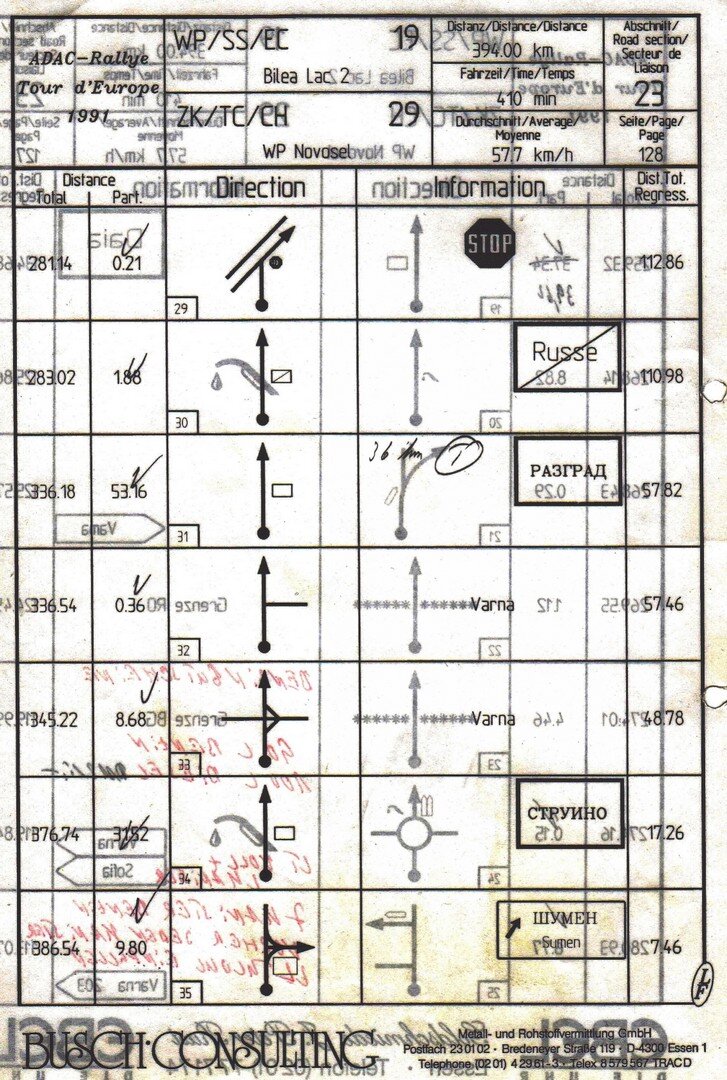 ADAC-Rallye
Tour d'Europe
1991
WP/SS/EC 19
Bilea Lac 2
ZK/TC/CH 29
WP Novosel
Distanz/Distance/Distance
394.00 km
Fahrzeit/Time/Temps
410 min
Durchschnitt/Average/
Moyenne
57.7 km/h
Abschnitt/
Road section/
Secteur de
Liaison
23
Seite/Page/
Page
128
Distance
Total Part.
Direction
Information
Dist.Tot.
Regress.
281.14 0.21 29 STOP 112.86
283.02 1.88 30 Russe 110.98
336.18 53.16 31 36 km T РАЗГРАД 57.82
336.54 0.36 32 Varna 57.46
345.22 8.68 33 Varna 48.78
376.74 31.52 34 СТРУИНО 17.26
386.54 9.80 35 ШУМЕН 7.46
Sumen
BUSCH·CONSULTING
Metall- und Rohstoffvermittlung GmbH
Postfach 23 01 02 · Bredeneyer Straße 119 · D-4300 Essen 1
Telephone (02 01) 4 29 61-3 · Telex 8 579 567 TRACD